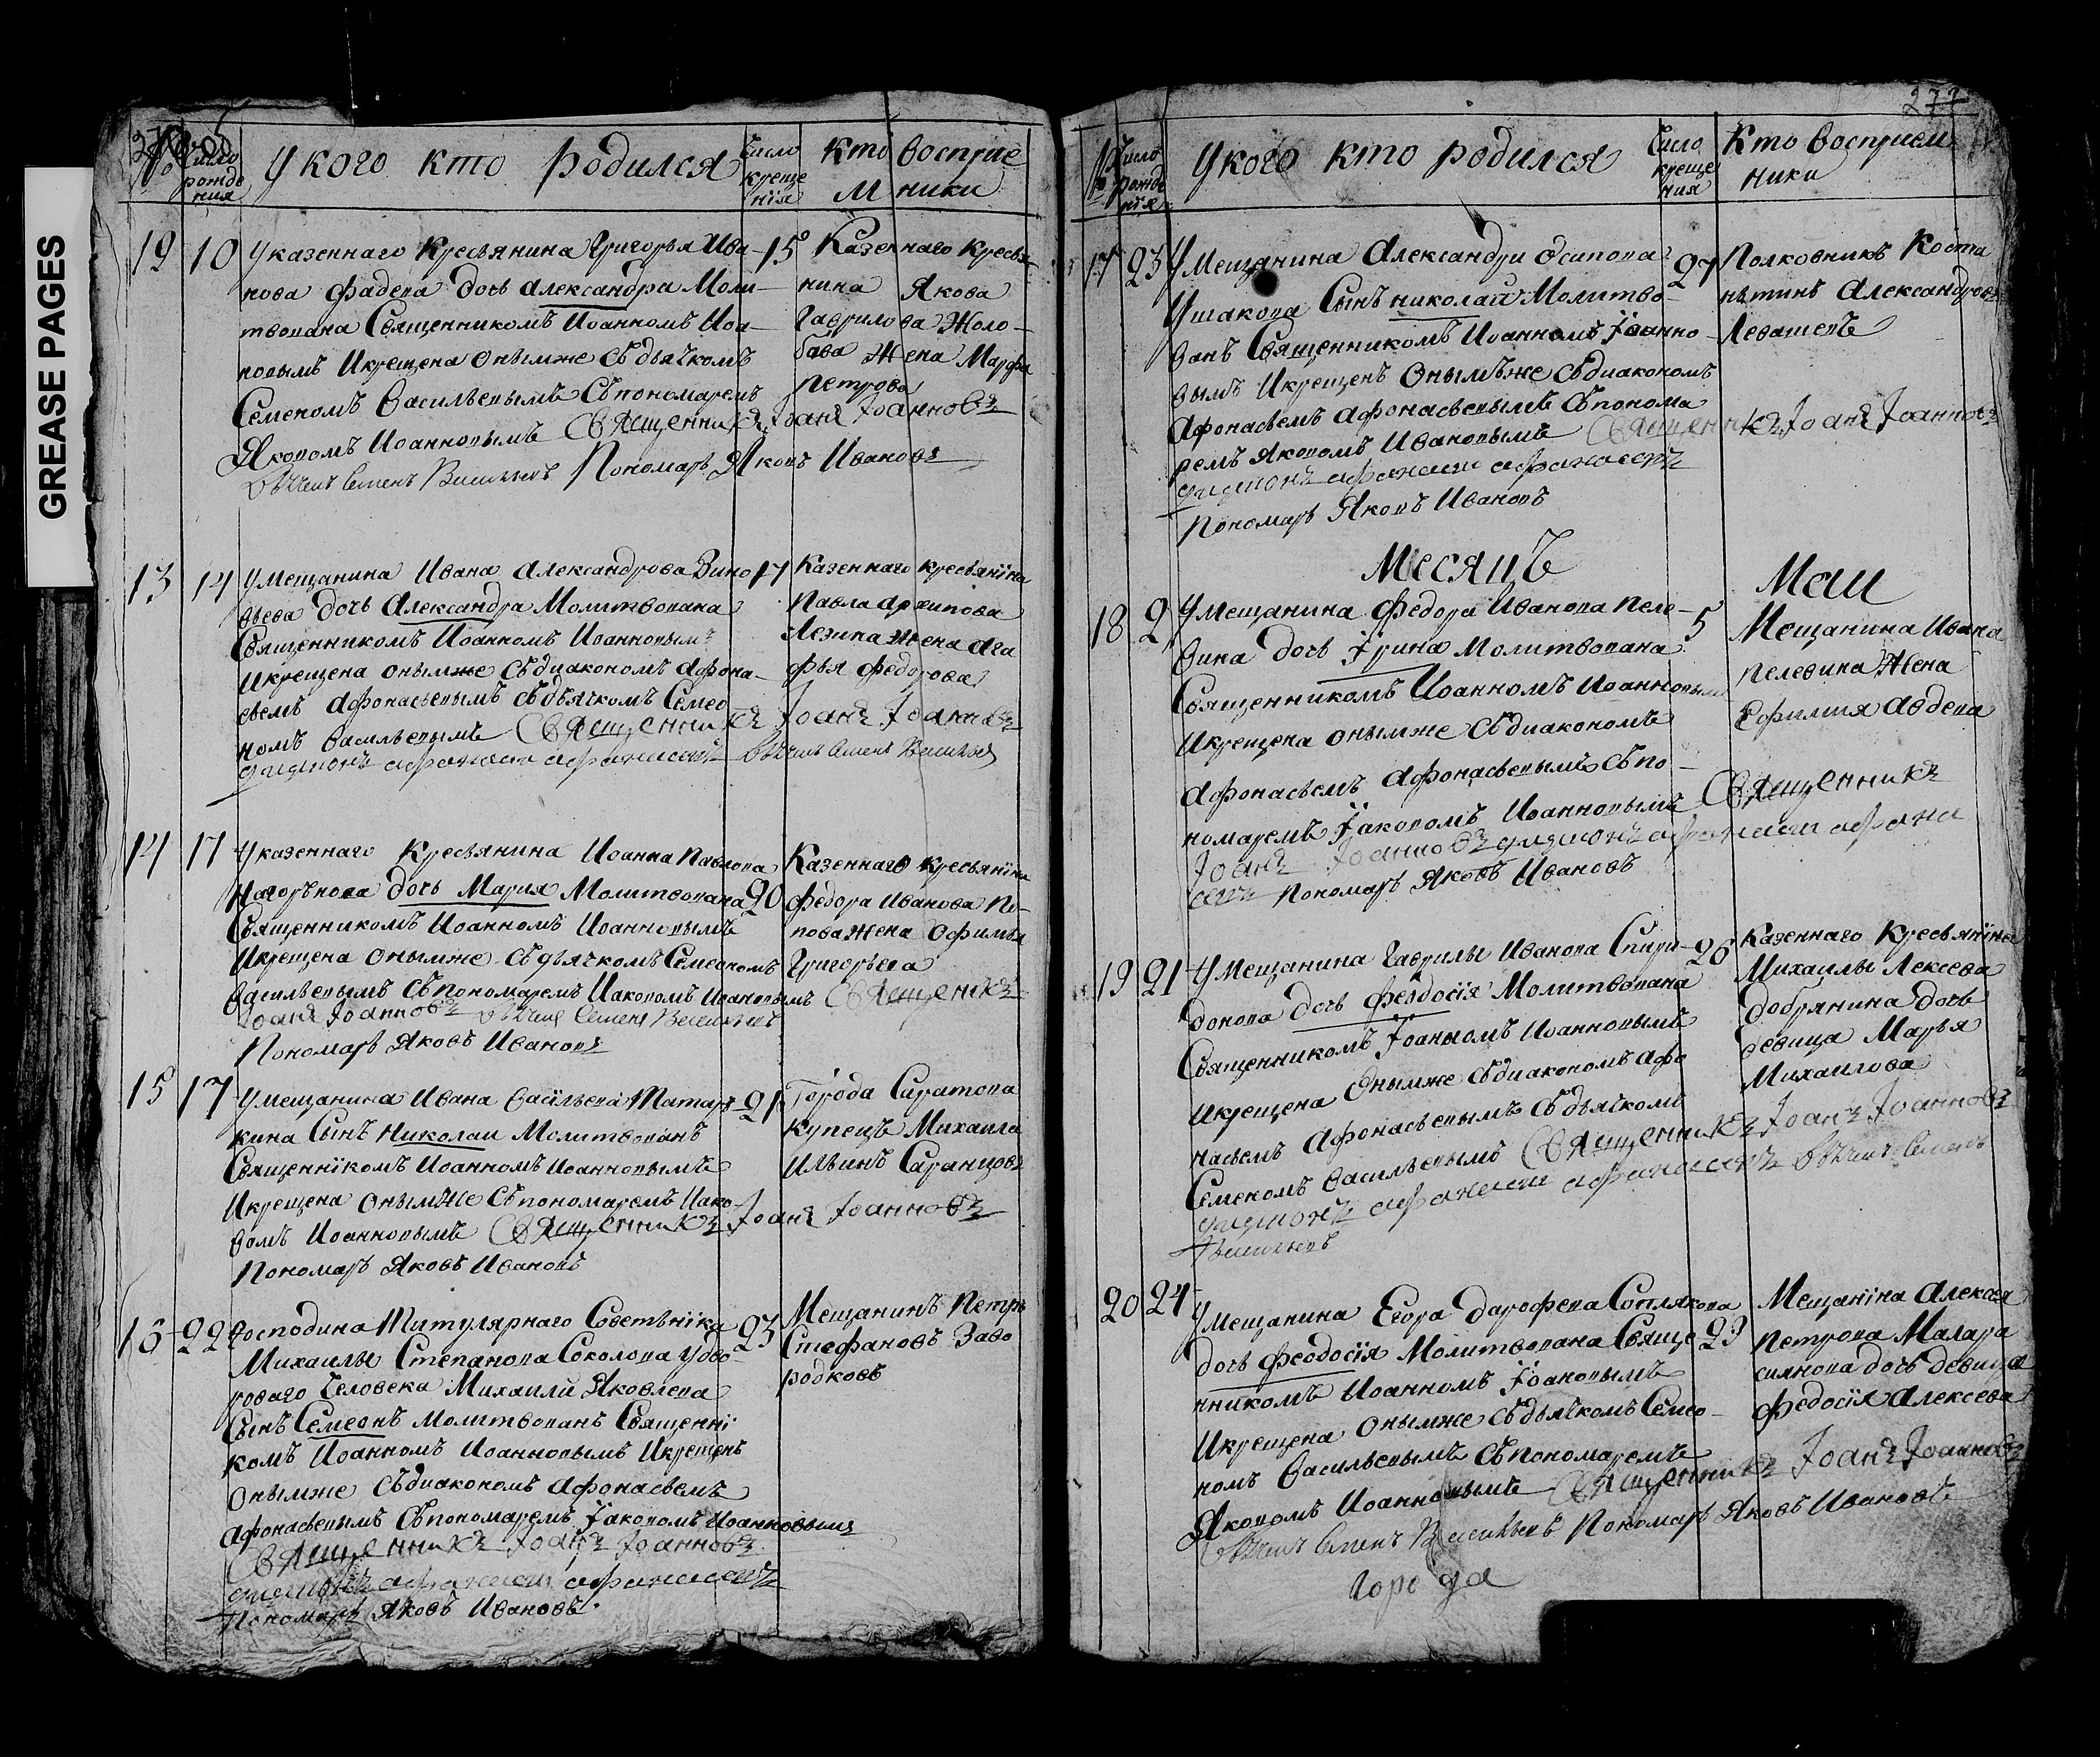 GREASE PAGES
№
Число рожде ния
У кого кто родился
Число креще нїя
Кто восприе мники
19 10 У казеннаго Кресьянина Григорья Ива-
нова Фадева дочь александра Моли-
твована Священникомъ Иоанномъ Иоа-
новымъ Икрещена онымже Съ дьячкомъ
Семеномъ Васильевымъ Съ пономаремъ
Яковомъ Иоанновымъ Священникъ Іоанъ Іоанновъ
Семенъ Васильевъ Пономарь Яковъ Ивановъ
15 Казеннаго кресья
нина Якова
Гаврилова Жоло-
бава Жена Марфа
Петрова
13 14 У Мещанина Ивана Александрова Зино
вьева дочь Александра Молитвована
Священникомъ Иоанномъ Иоанновымъ
Икрещена онымже Съ диакономъ Афона-
сьемъ Афонасьевымъ Съ дьячкомъ Семео
номъ Васильевымъ Священникъ Іоанъ Іоанновъ
диаконъ афанасей афанасевъ Семенъ Васильев
17 Казеннаго кресьянїна
Павла Архипова
Лезина жена Ага
фья Федорова
14 17 У казеннаго Кресьянина Иоанна Павлова
Нагорънова дочь Мария Молитвована
Священникомъ Иоанномъ Иоанновымъ
Икрещена онымже Съ дьячкомъ Семеономъ
Васильевымъ Съ пономаремъ Иаковомъ Иоанновымъ Священикъ
Іоанъ Іоанновъ Семенъ Васильевъ
Пономарь Яковъ Ивановъ
20 Казеннаго кресьянїна
Федора Иванова По-
пова Жена Офимья
Григорьева
15 17 У мещанина Ивана Васїльева Татар-
кина Сынъ Николаи Молитвованъ
Священнїкомъ Иоанномъ Иоанновымъ
Икрещена онымже Съ пономаремъ Иако-
вомъ Иоанновымъ Священникъ Іоанъ Іоанновъ
Пономарь Яковъ Ивановъ
21 Города Саратова
Купецъ Михаила
Ильинъ Саранцовъ
16 22 Господина Титулярнаго Советънїка
Михаилы Степанова Соколова у дво-
роваго Человека Михаили Яковлева
Сынъ Семеонъ Молитвованъ Священнї
комъ Иоанномъ Иоанновымъ Икрещенъ
онымже Съ диакономъ Афонасьемъ
Афонасьевымъ Съ пономаремъ Їаковомъ Иоанновымъ
Священникъ Іоанъ Іоанновъ
диаконъ афанасей афанасевъ
Пономарь Яковъ Ивановъ.
23 Мещанинъ Петръ
Стефановъ Заво
родковъ
Число рожде нїя
У кого кто родился
Число креще ния
Кто восприем ники
17 23 У Мещанина Александри Осипова
Ушакова Сынъ николай Молитво-
ванъ Священникомъ Иоанномъ Їоанно-
вымъ Икрещенъ Онымъже Съ диакономъ
Афонасьемъ Афонасьевымъ Съ понома
ремъ Яковомъ Ивановымъ Священникъ Іоанъ Іоанновъ
диаконъ афанасеи афанасевъ
Пономарь Яковъ Ивановъ
27 Полковникъ Коста
нътинъ Александровъ
Левашевъ
Месяцъ Маи
18 2 У Мещанина Федора Иванова Пеле-
вина дочь Їрина Молитвована
Священникомъ Иоанномъ Иоанновымъ
Икрещена онымже Съ диакономъ
Афонасьемъ Афонасьевымъ Съ по-
номаремъ Їаковомъ Иоанновымъ Священникъ
Іоанъ Іоанновъ диаконъ афанасеи афана
севъ Пономарь Яковъ Ивановъ
5 Мещанина Ивана
Пелевина Жена
Ефимия Авдева
19 21 У Мещанина Гаврилы Иванова Спири-
донова дочь Феодосїя Молитвована
Священникомъ Їоанномъ Иоанновымъ
Икрещена Онымже Съ диакономъ Афо
насьемъ Афонасьевымъ Съ дьячкомъ
Семеномъ Васильевымъ Священникъ Іоанъ Іоанновъ
диаконъ афанасеи афанасевъ Семенъ
Васильевъ
26 Казеннаго Кресьянїна
Михаилы Лексеева
Добрянина дочь
девица Марья
Михаилова
20 24 У Мещанина Егора Дарофева Соплякова
дочь Феодосїя Молитвована Свяще
нникомъ Иоанномъ Їоановымъ
Икрещена Онымже Съ дьячкомъ Семео-
номъ Васильевымъ Съ пономаремъ
Яковомъ Иоанновымъ Священникъ Іоанъ Іоанновъ
Семенъ Васильевъ Пономарь Яковъ Ивановъ
29 Мещанїна Алексея
Петрова Малара
сиянова дочь девица
Федосїя Алексеева
города